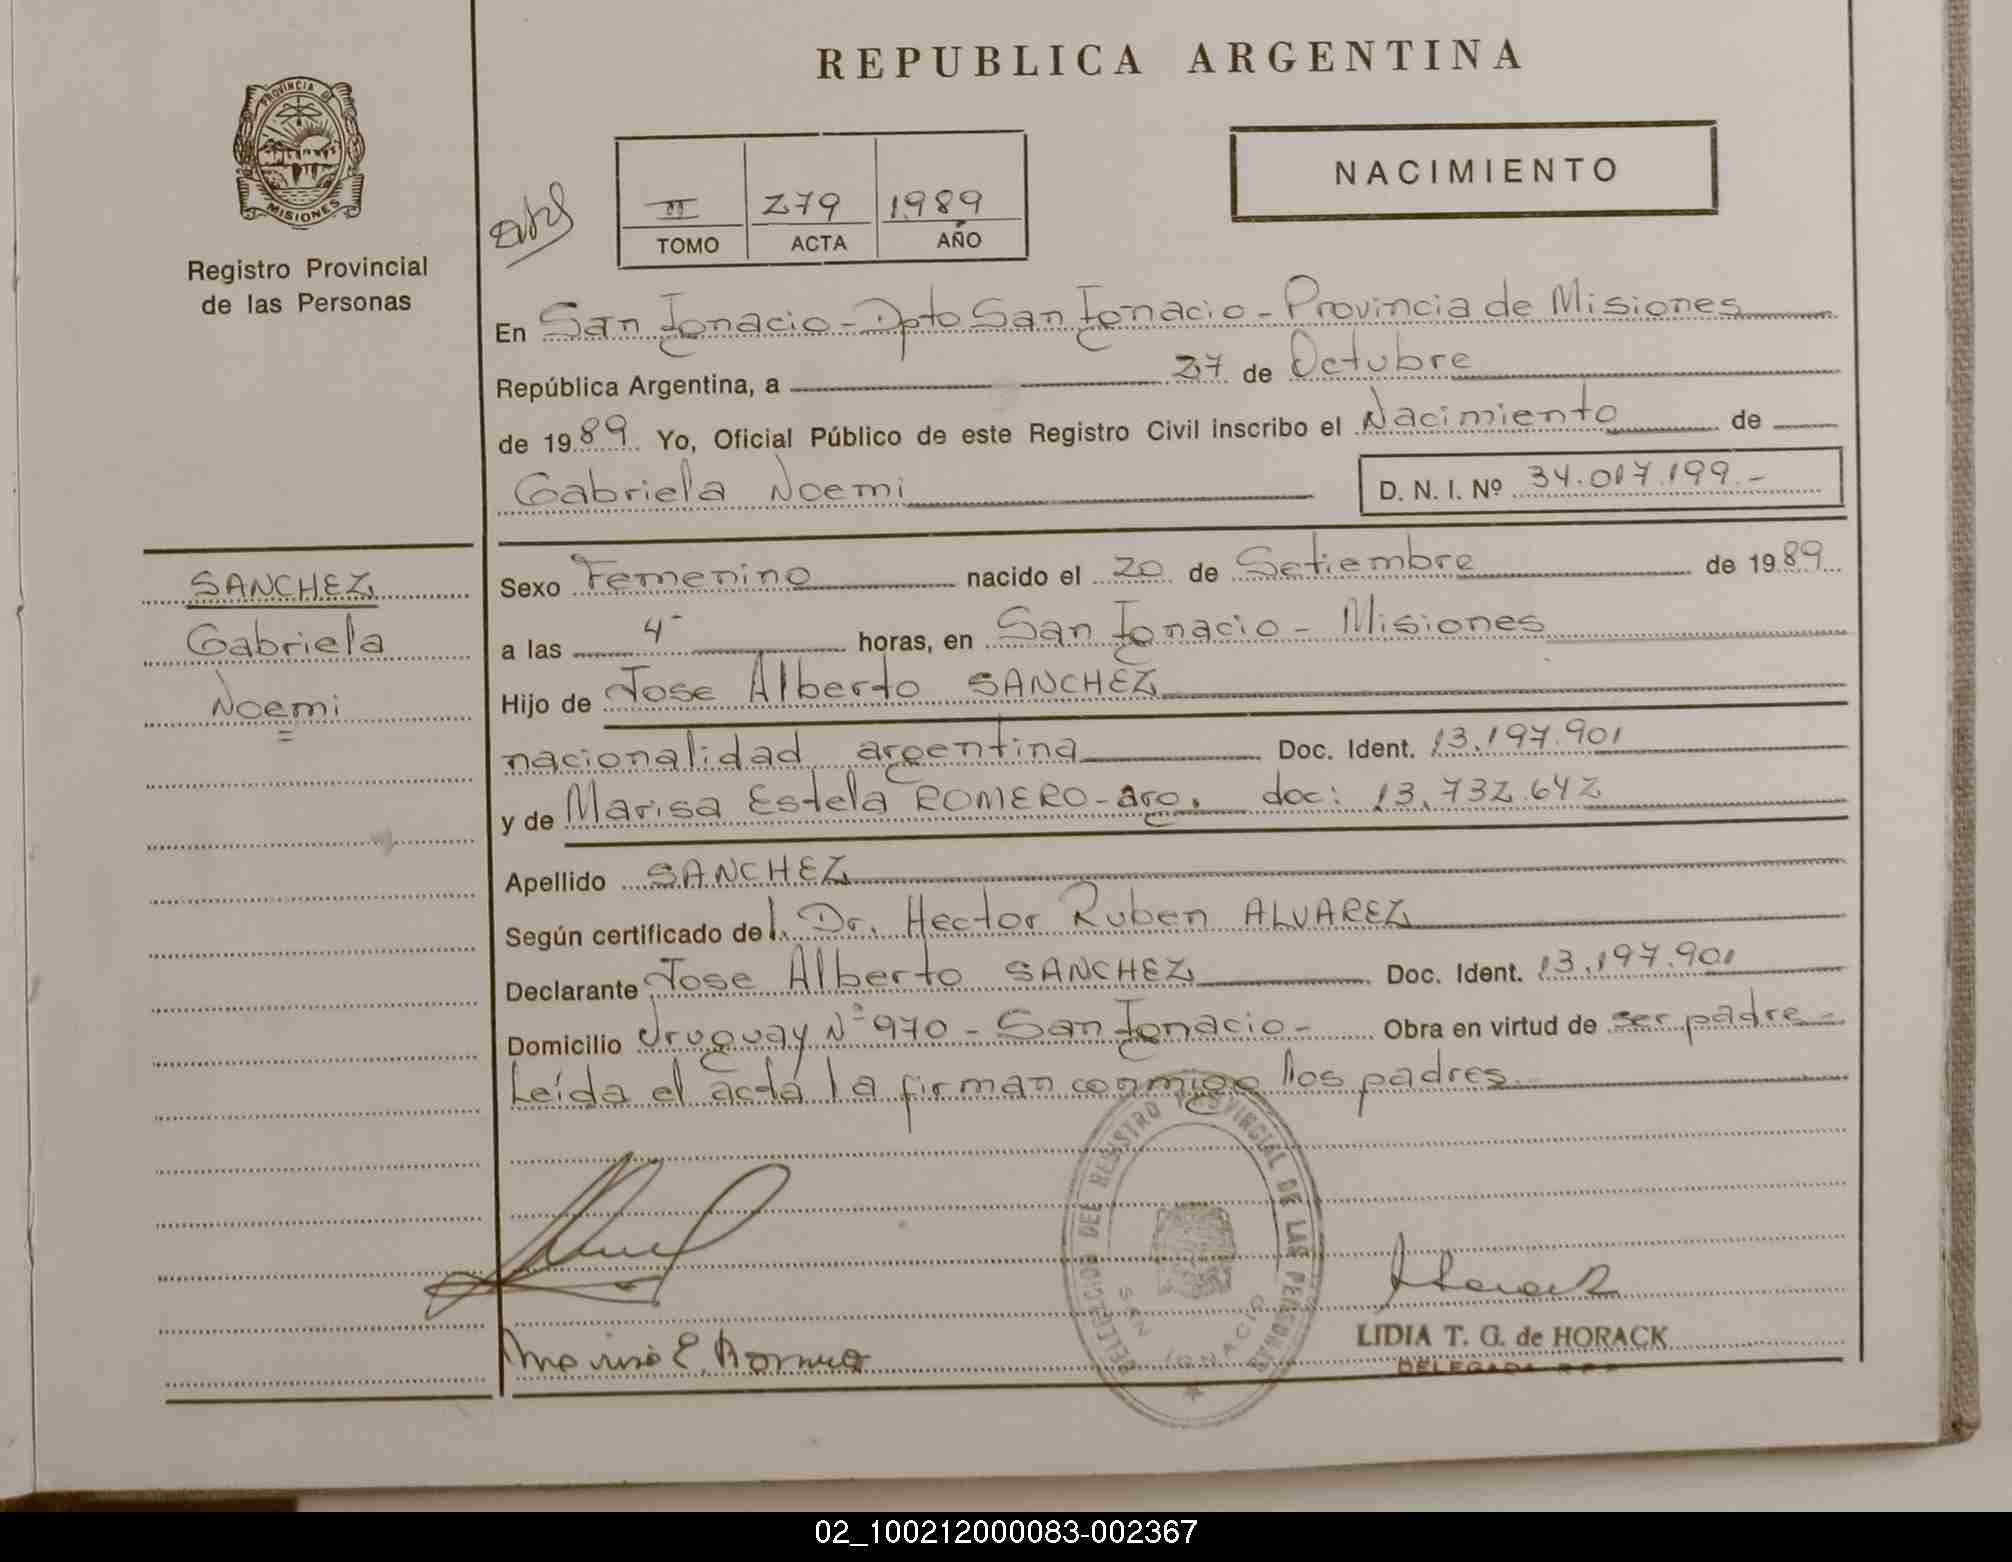 REPUBLICA ARGENTINA
PROVINCIA DE
MISIONES
Registro Provincial
de las Personas
NACIMIENTO
II 279 1989
TOMO ACTA AÑO
En San Ignacio - Dpto San Ignacio - Provincia de Misiones
República Argentina, a 27 de Octubre
de 1989 Yo, Oficial Público de este Registro Civil inscribo el Nacimiento de
Gabriela Noemi D. N. I. Nº 34.017.199.-
SANCHEZ
Gabriela
Noemi
Sexo Femenino nacido el 20 de Setiembre de 1989
a las 4- horas, en San Ignacio - Misiones
Hijo de Jose Alberto SANCHEZ
nacionalidad argentina Doc. Ident. 13.197.901
y de Marisa Estela ROMERO - arg. doc: 13.732.642
Apellido SANCHEZ
Según certificado del Dr. Hector Ruben ALVAREZ
Declarante Jose Alberto SANCHEZ Doc. Ident. 13.197.901
Domicilio Uruguay Nº 970 - San Ignacio - Obra en virtud de ser padre -
Leída el acta la firman conmigo los padres
DELEGACION DEL REGISTRO PROVINCIAL DE LAS PERSONAS
SAN IGNACIO
Horack
LIDIA T. G. de HORACK
DELEGADA R.P.P.
Marisa E. Romero
02_100212000083-002367